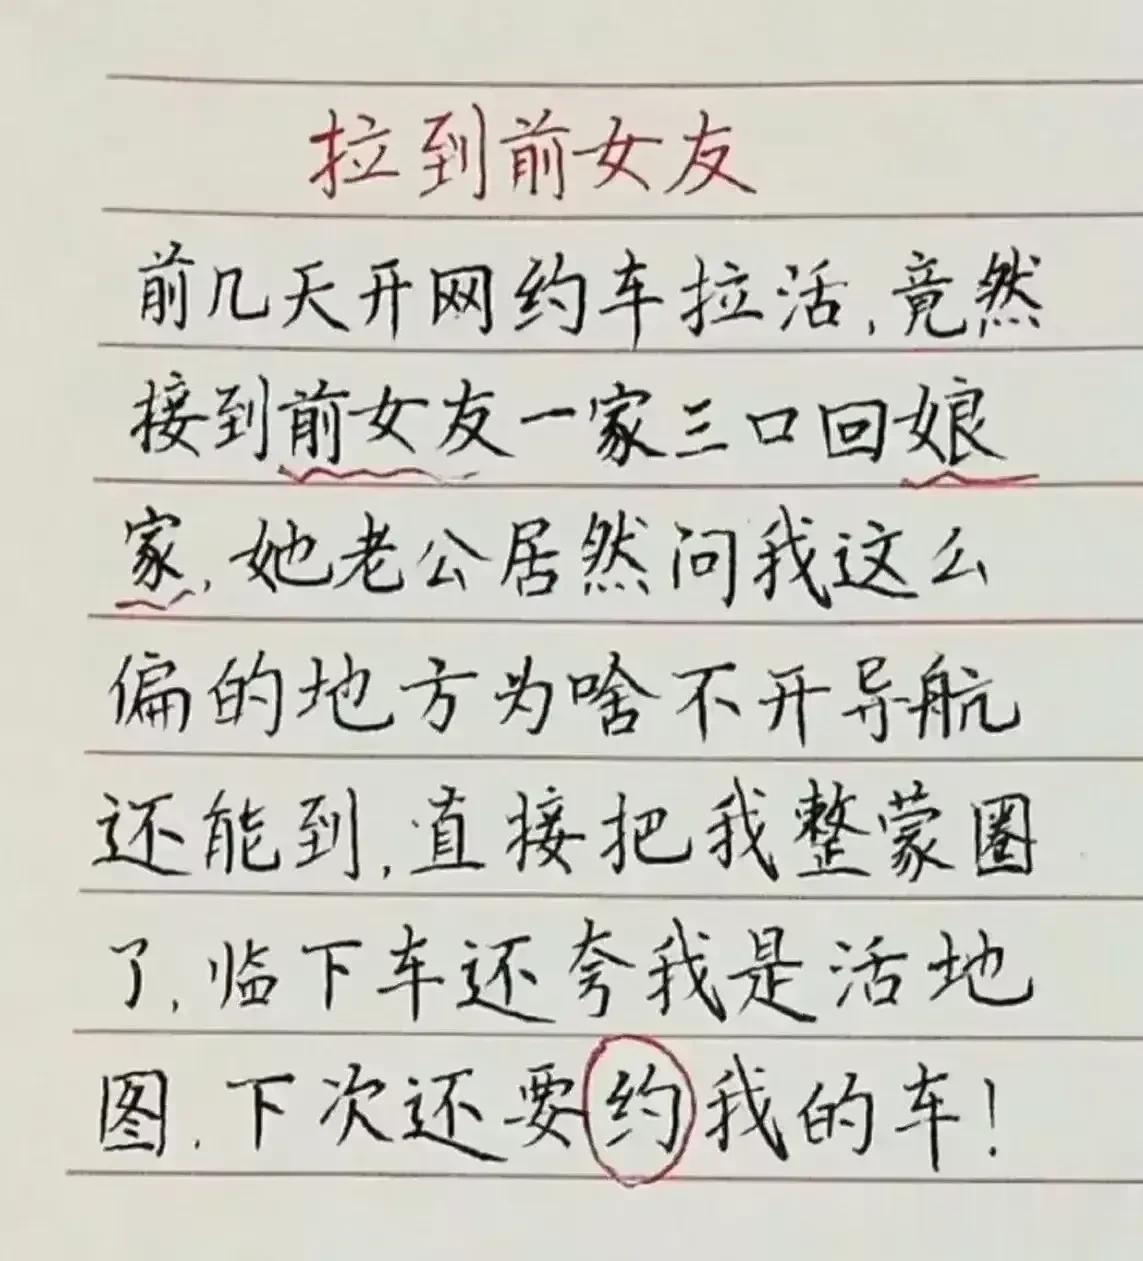 拉到前女友
前几天开网约车拉活,竟然
接到前女友一家三口回娘
家,她老公居然问我这么
偏的地方为啥不开导航
还能到,直接把我整蒙圈
了,临下车还夸我是活地
图.下次还要约我的车!